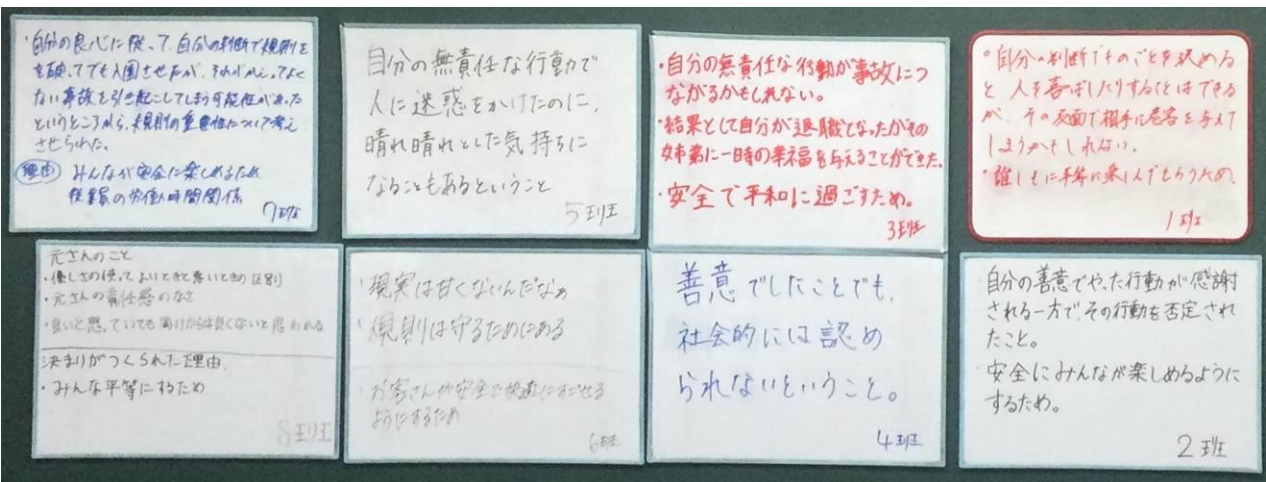 ・自分の良心に従って、自分の判断で規則を
を破ってでも入園させたが、それがかえってよく
ない事故を引き起こしてしまう可能性があった
というところから、規則の重要性について考え
させられた。
理由 みんなが安全に楽しめるため
従業員の労働時間関係
7班
自分の無責任な行動で
人に迷惑をかけたのに、
晴れ晴れとした気持ちに
なることもあるということ
5班
・自分の無責任な行動が事故につ
ながるかもしれない。
・結果として自分が退職となったがその
姉弟に一時の幸福を与えることができた。
・安全で平和に過ごすため。
3班
・自分の判断でものごとを決める
と人を喜ばしたりすることはできる
が、その反面で相手に危害を与えて
しまうかもしれない。
・誰しもに平等に楽しんでもらうため。
1班
元さんのこと
・優しさの使ってよいときと悪いときの区別
・元さんの責任感のなさ
・良いと思っていても周りからは良くないと思われる
決まりがつくられた理由
・みんな平等にするため
8班
・現実は甘くないんだなぁ
・規則は守るためにある
・お客さんが安全で快適にすごせる
ようにするため
6班
善意でしたことでも、
社会的には認め
られないということ。
4班
・自分の善意でやった行動が感謝
される一方で、その行動を否定され
たこと。
・安全にみんなが楽しめるように
するため。
2班